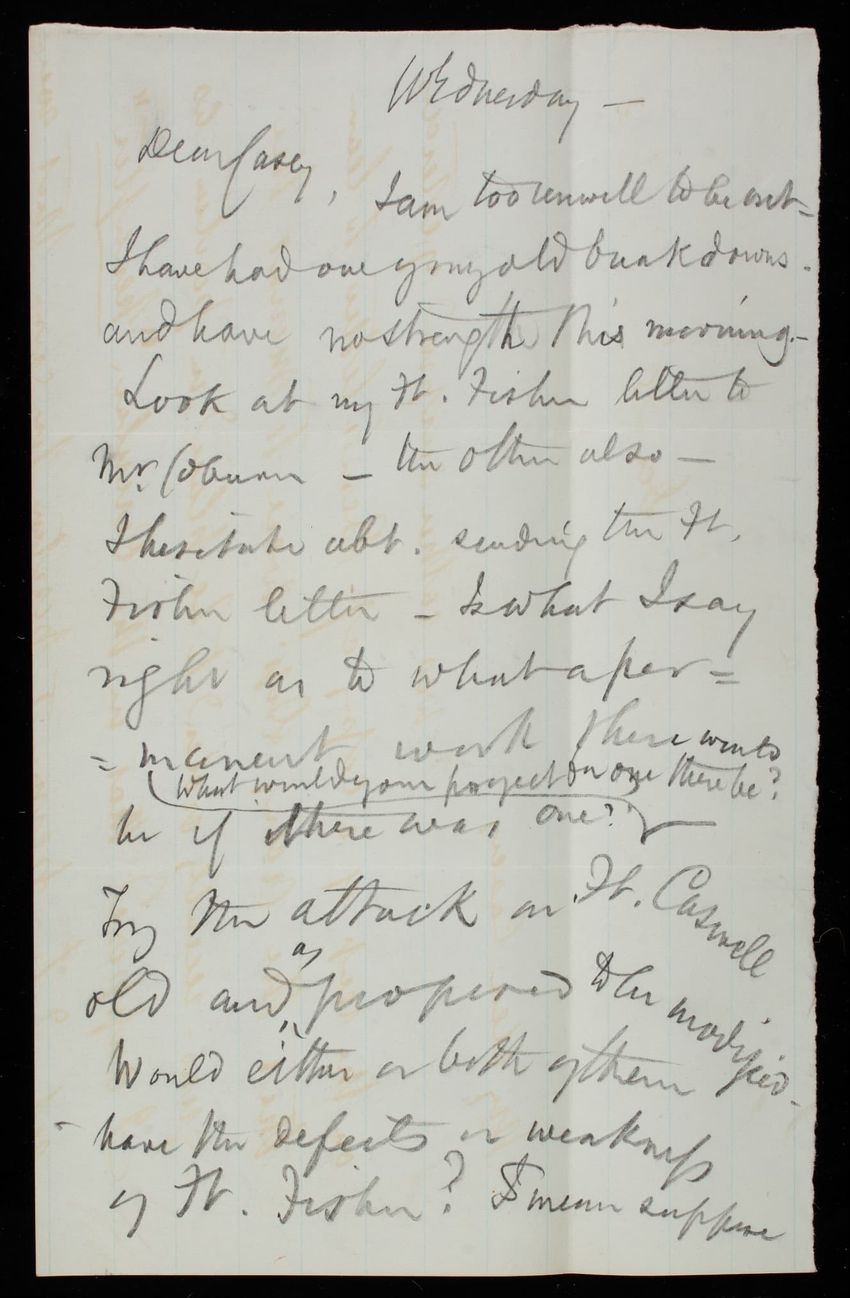 Wednesday —
Dear Casey,
I am too unwell to be out =
I have had one of my old break downs -
and have no strength this morning. -
Look at my Ft. Fisher letter to
Mr. Coburn — the other also —
I hesitate abt. sending the Ft.
Fisher letter - Is what I say
right as to what a per =
= manent work there would
(What would your project for one there be?
be if there was one?)
Try the attack on Ft. Caswell
old and as proposed to be modified.
Would either or both of them
have the defects or weakness
of Ft. Fisher? I mean suppose